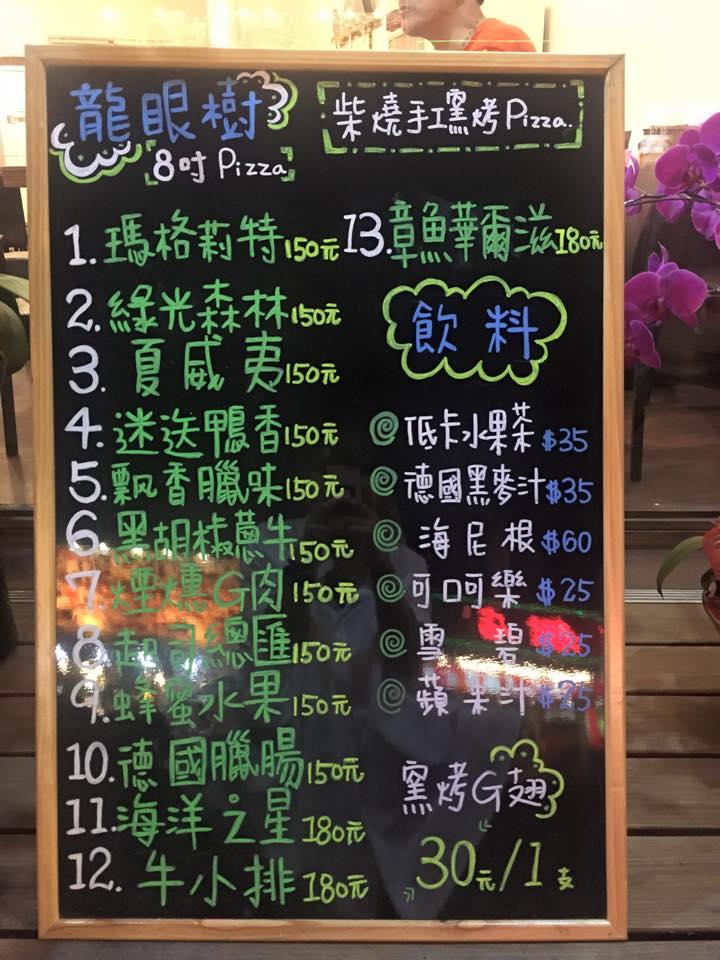 龍眼樹
8吋 Pizza
柴燒手工窯烤Pizza.
1. 瑪格莉特150元
2. 綠光森林150元
3. 夏威夷150元
4. 迷迭鴨香150元
5. 飄香臘味150元
6. 黑胡椒蔥牛150元
7. 煙燻G肉150元
8. 起司總匯150元
9. 蜂蜜水果150元
10. 德國臘腸150元
11. 海洋之星180元
12. 牛小排180元
13. 章魚華爾滋180元
飲料
低卡水果茶 $35
德國黑麥汁 $35
海尼根 $60
可口可樂 $25
雪碧 $25
蘋果汁 $25
窯烤G翅
30元/1支